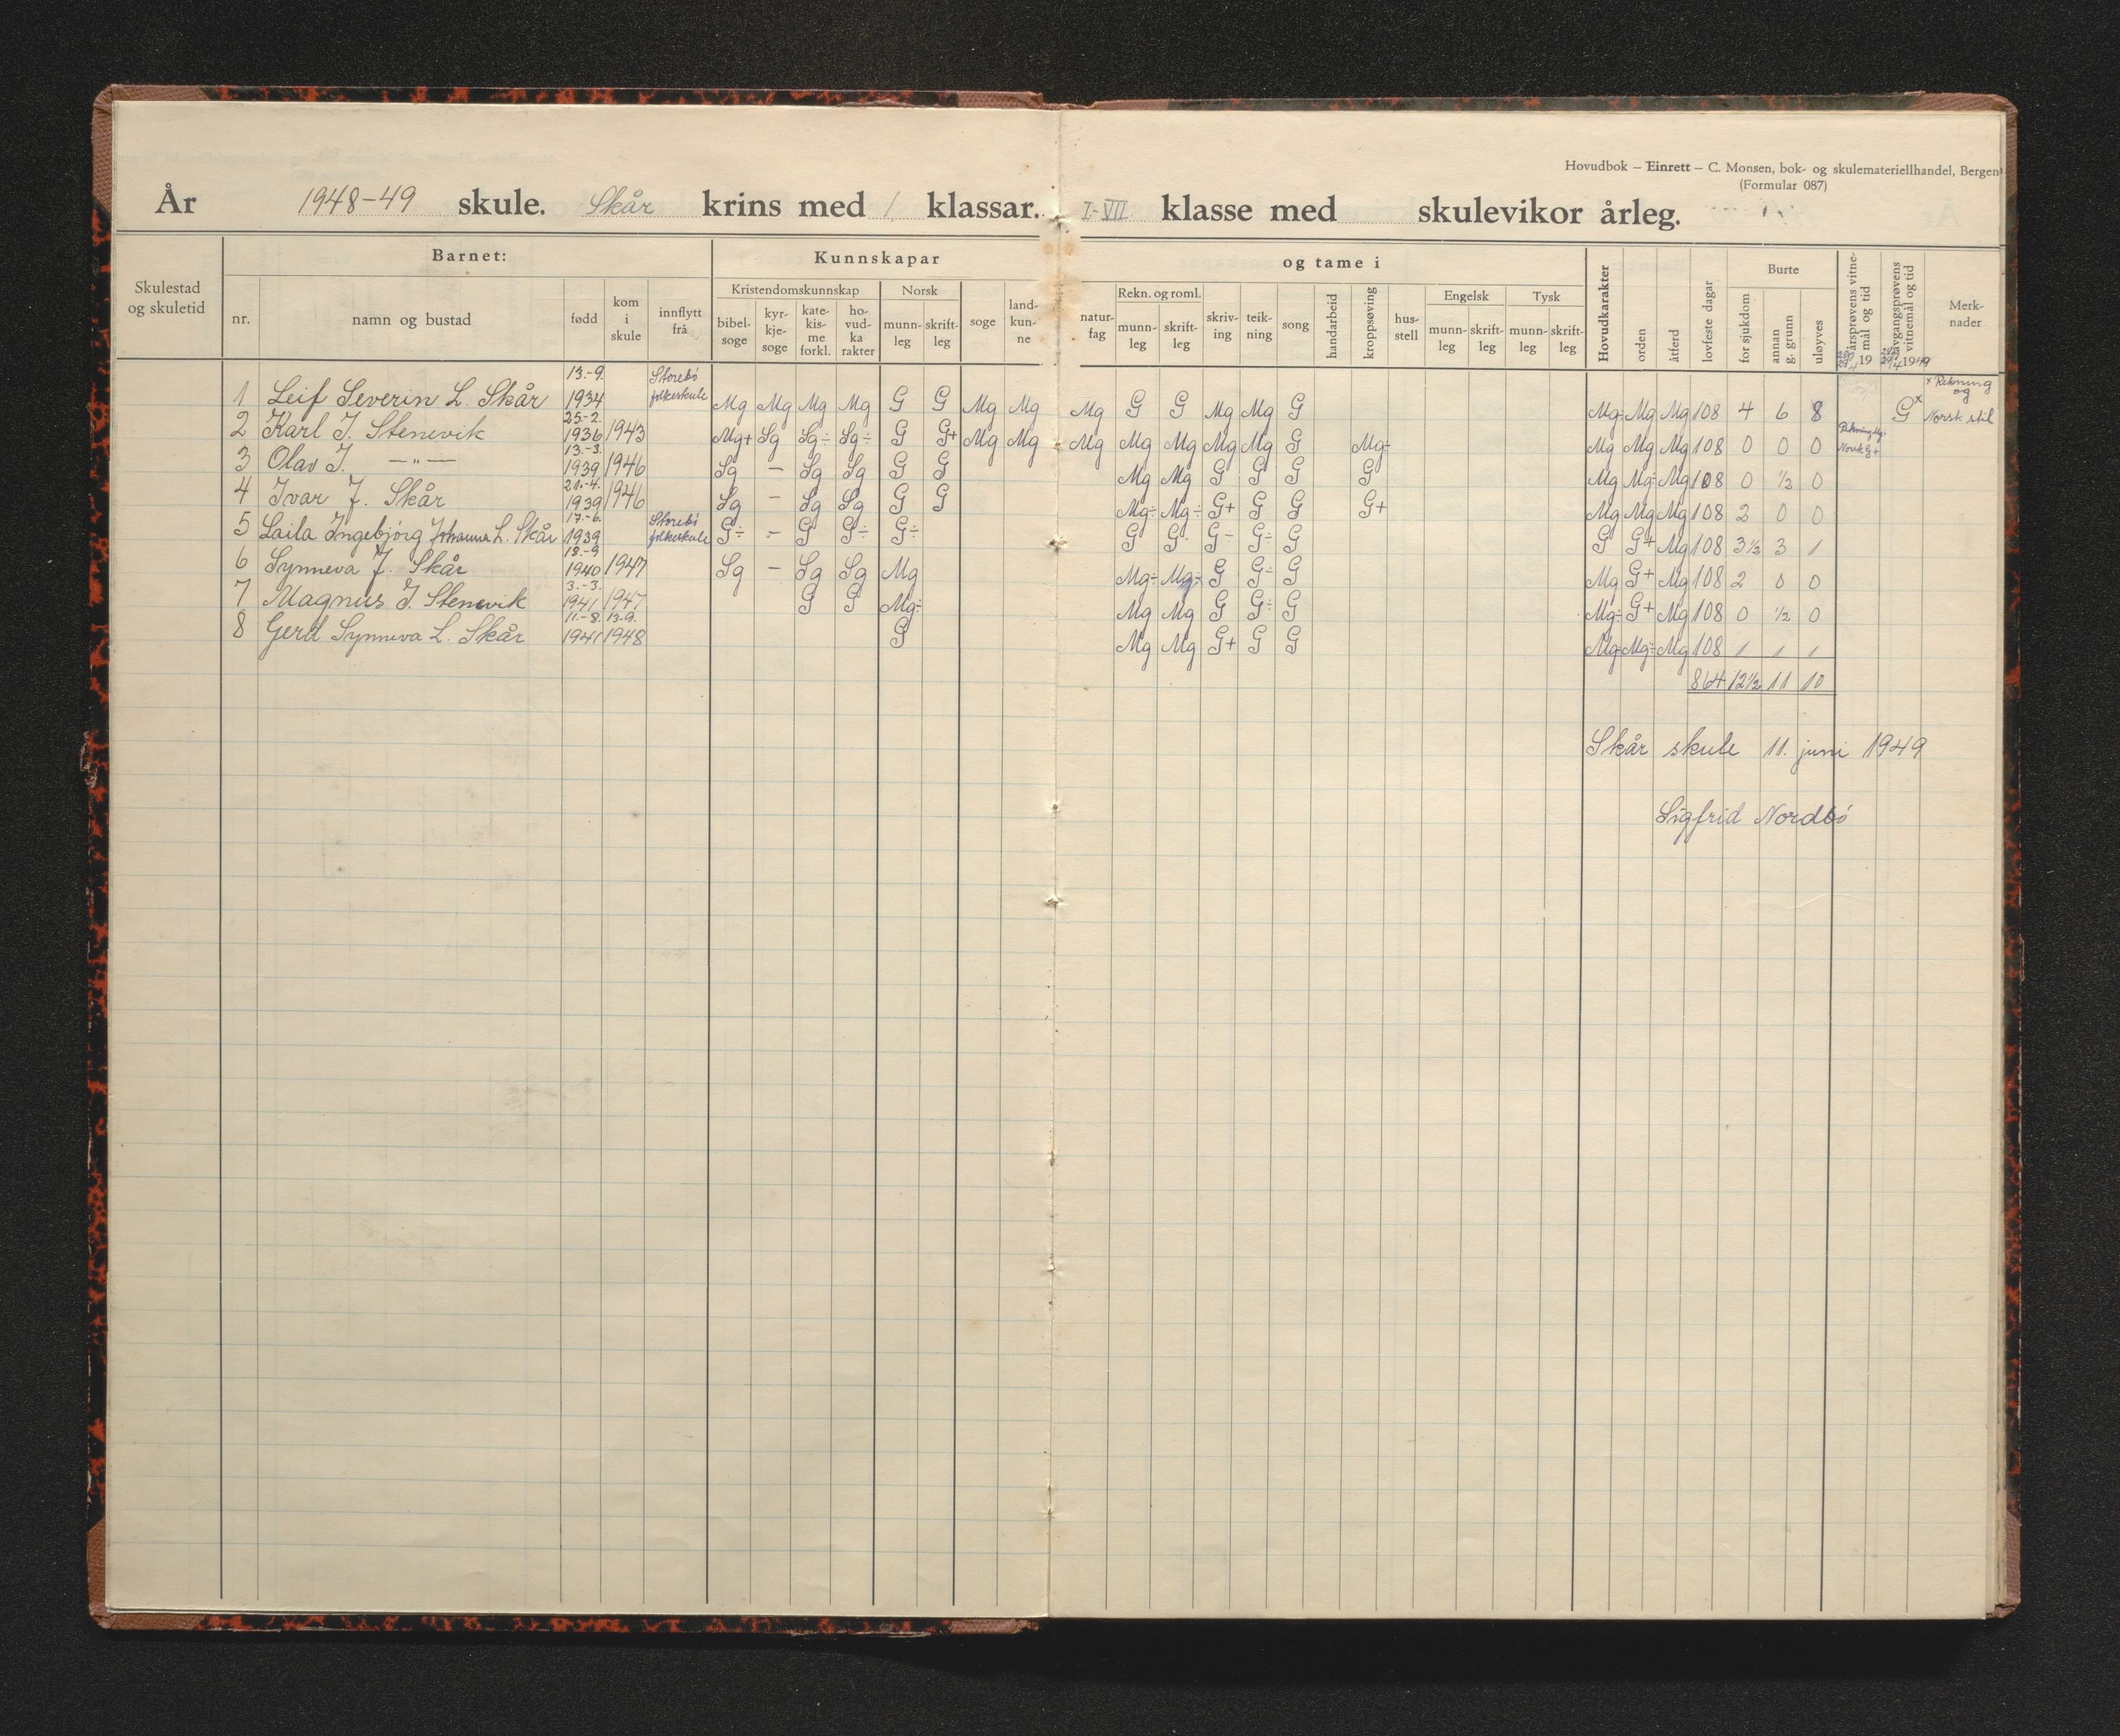 Hovudbok – Einrett – C. Monsen, bok- og skulemateriellhandel, Bergen
(Formular 087)
År 1948-49 skule. Skår krins med 1 klassar. I-VII klasse med skulevikor årleg.
Skulestad og skuletid
Barnet:
nr. namn og bustad fødd kom i skule innflytt frå
Kunnskapar og tame i
Kristendomskunnskap Norsk Rekn. og roml. Engelsk Tysk Burte
bibel-soge kyr-kje-soge kate-kis-me forkl. ho-vud-ka rakter munn-leg skrift-leg soge land-kun-ne natur-fag munn-leg skrift-leg skriv-ing teik-ning song handarbeid kroppsøving hus-stell munn-leg skrift-leg munn-leg skrift-leg Hovudkarakter orden åtferd lovfeste dagar for sjukdom annan g. grunn uløyves årsprøvens vitne-mål og tid 19 avgangsprøvens vitnemål og tid 1949 Merk-nader
1 Leif Severin L. Skår 13.-9. 1934 Storebö folkeskule Mg Mg Mg Mg G G Mg Mg Mg G G Mg Mg G Mg÷ Mg Mg 108 4 6 8 G× × Rekning og Norsk stil
2 Karl J. Stenevik 25-2. 1936 1943 Mg+ Sg Sg÷ Sg÷ G G+ Mg Mg Mg Mg Mg Mg Mg G Mg÷ Mg Mg Mg 108 0 0 0 Rekning Mg÷ Norsk G+
3 Olav J. —"— 13.-3. 1939 1946 Sg – Sg Sg G G Mg Mg G G G G Mg Mg÷ Mg 108 0 ½ 0
4 Ivar J. Skår 21.-4. 1939 1946 Sg – Sg Sg G G Mg÷ Mg÷ G+ G G G+ Mg Mg Mg 108 2 0 0
5 Laila Ingebjörg Johanna L. Skår 17.-6. 1939 Storebö folkeskule G÷ – G G÷ G÷ G G÷ G÷ G÷ G G G+ Mg 108 3½ 3 1
6 Synneva J. Skår 18.-9 1940 1947 Sg – Sg Sg Mg Mg÷ Mg÷ G G÷ G Mg G+ Mg 108 2 0 0
7 Magnus J. Stenevik 3.-3. 1941 1947 G G Mg÷ Mg Mg G G÷ G Mg÷ G+ Mg 108 0 ½ 0
8 Gerd Synneva L. Skår 11.-8. 1941 13.-9. 1948 G Mg Mg G+ G G Mg÷ Mg÷ Mg 108 1 1 1
864 12½ 11 10
Skår skule 11. juni 1949
Sigfrid Nordbö